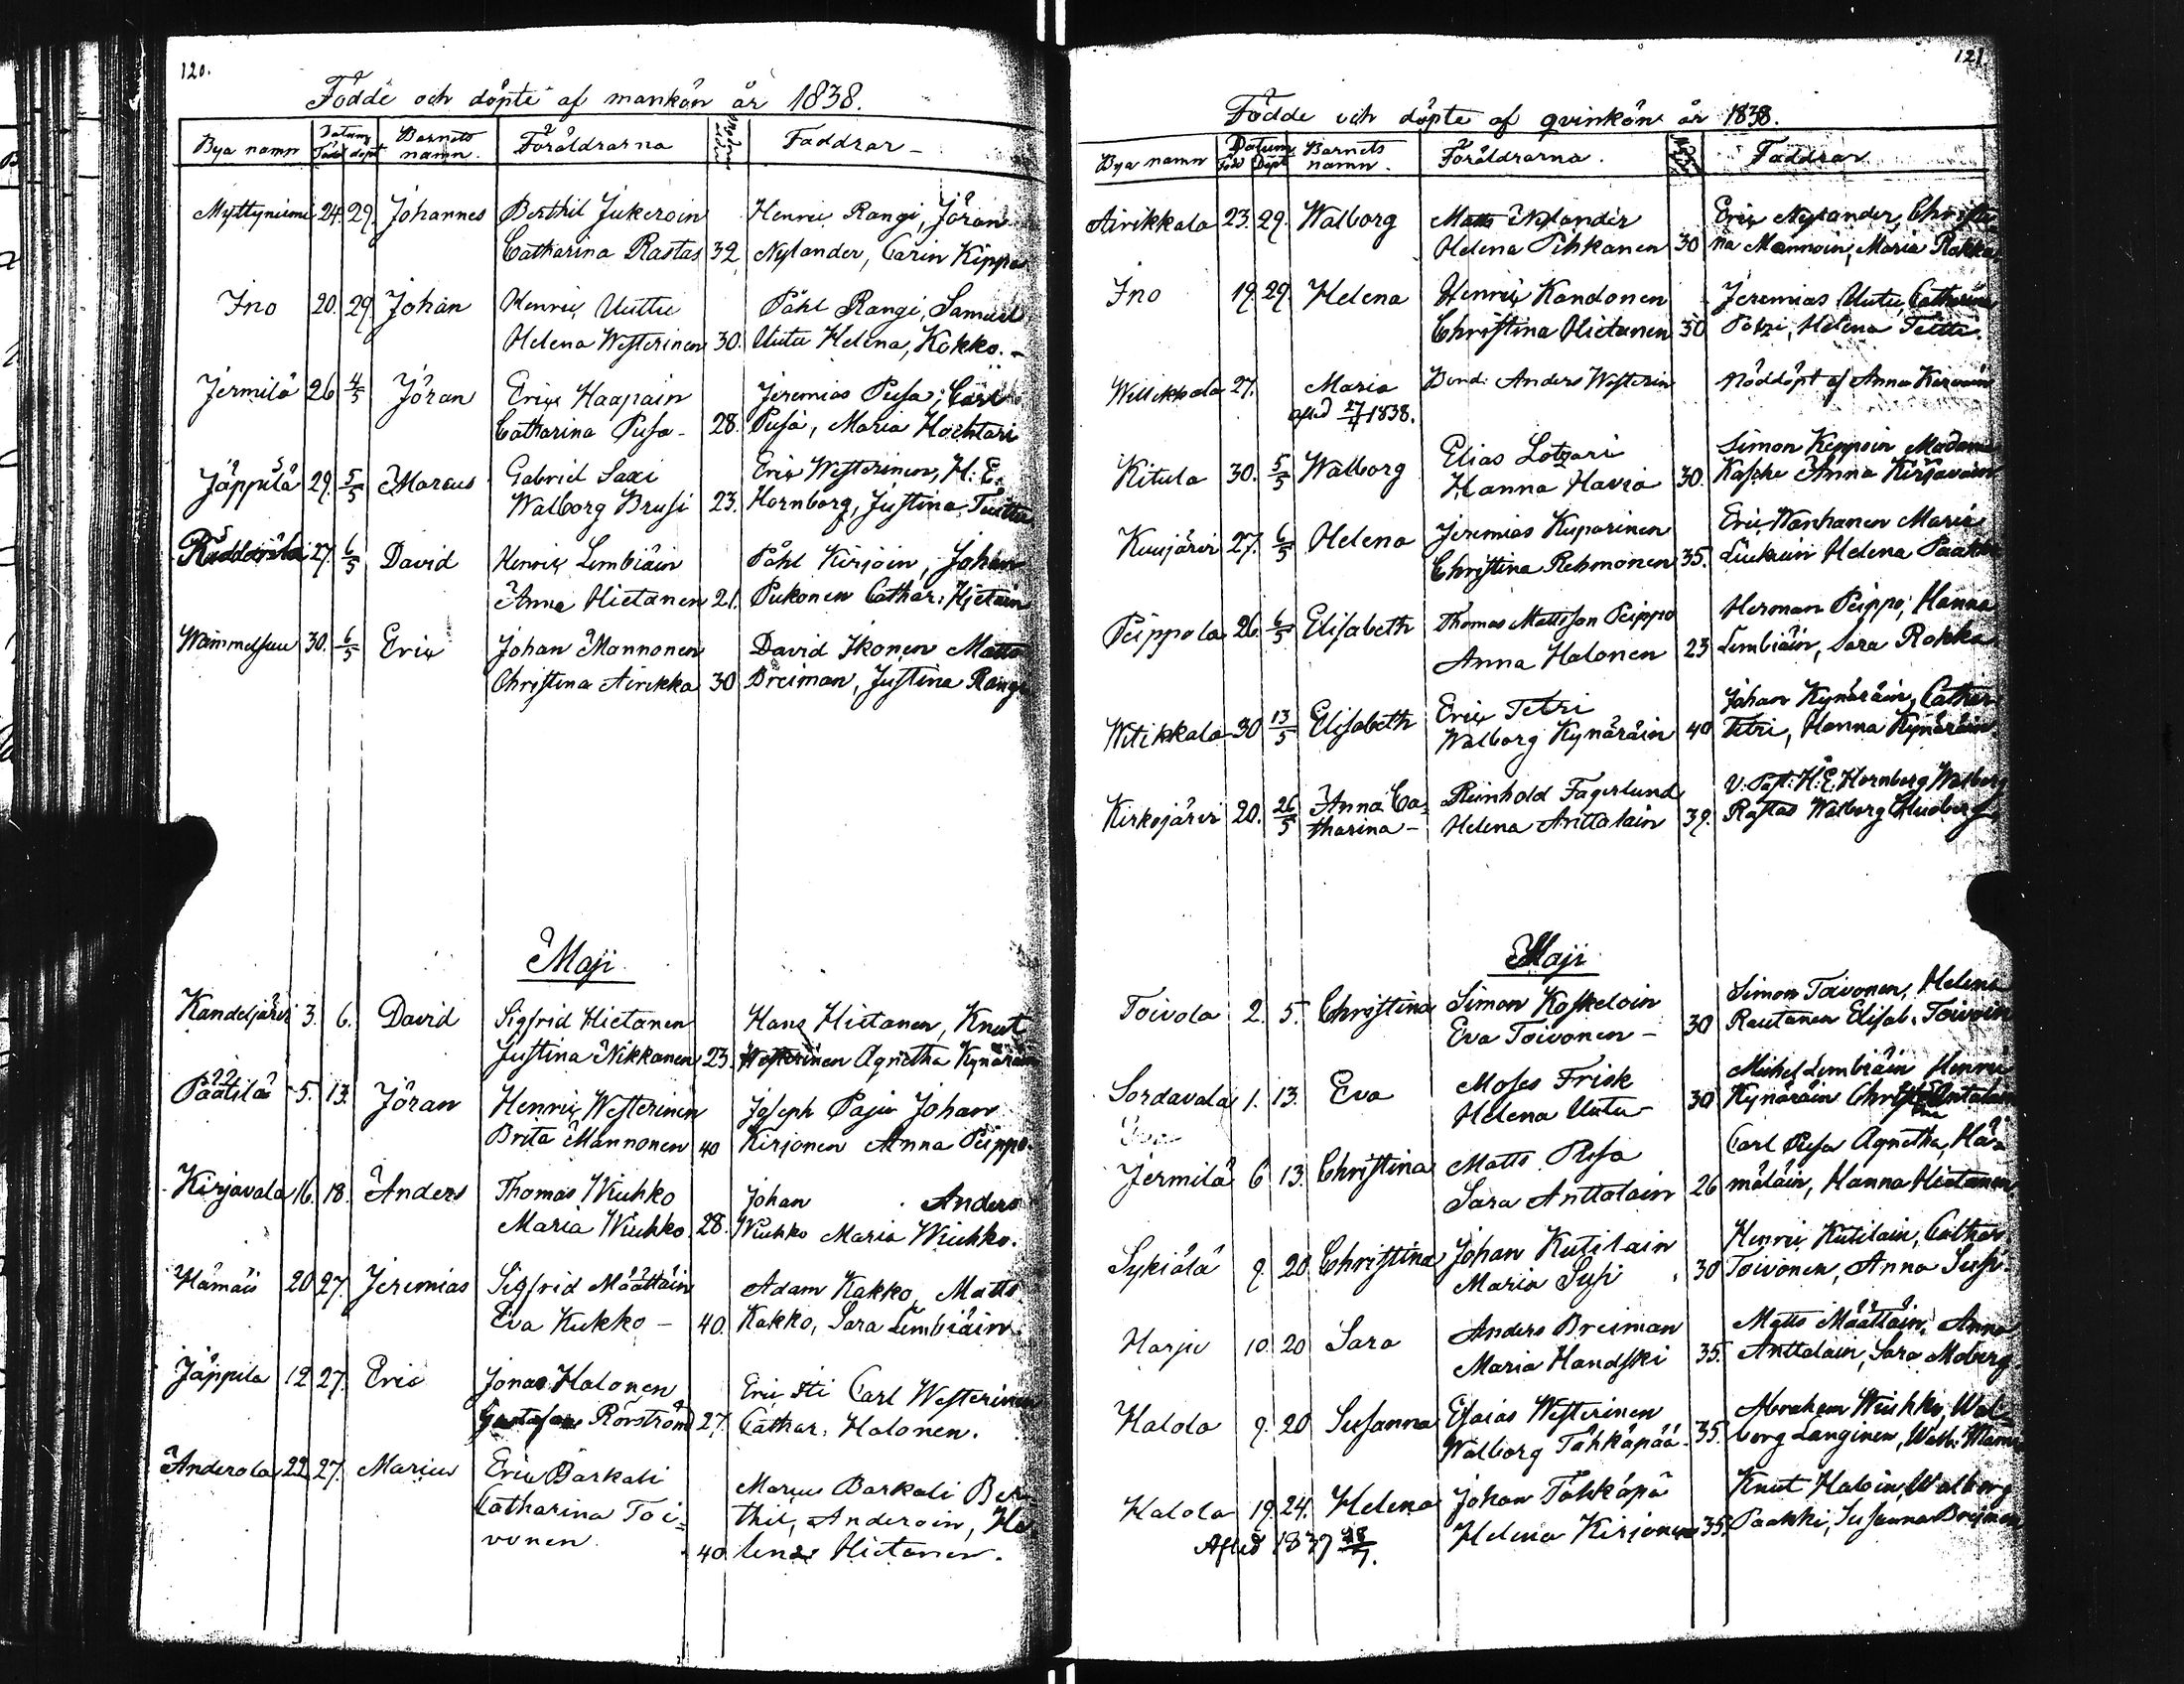 120.
Födde och döpte af mankön år 1838.
Bya namn Datum Född döpt Barnets namn. Föräldrarna Faddrar
Myttyniemi 24. 29. Johannes Berthil Jukeroin Henric Rangi, Jöran
Catharina Rastas 32 Nylander, Carin Kippa
Ino 20. 29. Johan Henric Uuttu Påhl Rangi, Samuel
Helena Westerinen 30. Uutu Helena, Kokko.
Jermilä 26 4/5 Jöran Eric Haapain Jeremias Pusa, Carl
Catharina Pusa 28. Pusa, Maria Hochtari
Jäppilä 29. 5/5 Marcus Gabriel Saxi Eric Westerinen, H. E.
Walborg Brusi 23. Hornborg, Justina Tuittu
27. 6/5 David Henric Lembiäin Påhl Kirjoin, Johan
Anna Hietanen 21. Pukonen Cathar: Hjetain
Wammelsuu 30. 6/5 Eric Johan Mannonen David Ikonen Matts
Christina Airikka 30 Breiman, Justina Rangi
Maji
Kandeljärvi 3. 6. David Sigfrid Hietanen Hans Hietanen, Knut
Justina Nikkanen 23. Westerinen Agnetha Kynäräin
Päätilä 5. 13. Jöran Henric Westerinen Joseph Paju Johan
Brita Mannonen 40 Kirjonen Anna Peippo.
Kirjavala 16. 18. Anders Thomas Wiuhko Johan Anders
Maria Wiuhko 28. Wiuhko Maria Wiuhko.
Hämäis 20 27. Jeremias Sigfrid Määttäin Adam Kakko, Matts
Eva Kukko 40. Kakko, Sara Lembiäin.
Jäppila 12 27. Eric Jonas Halonen Eric Iti Carl Westerinen
Rörström 27. Cathar. Halonen.
Anderola 22 27. Marius Eric Barkali Marcus Barkali Ber
Catharina Toi= thil, Anderoin, He
vonen 40. lena Hietanen.
121.
Födde och döpte af qvinkön år 1838.
Bya namn Datum Född Döpt Barnets namn. Föräldrarna. Faddrar
Airikkala 23. 29. Walborg Matts Nylander Eric Nylander, Christi
Helena Pihkanen 30 na Mannoin, Maria Rokka.
Ino 19. 29. Helena Henric Kandonen Jeremias Uutu, Catharina
Christina Hietanen 30 Potzi, Helena Teitti.
Willikkala 27. Maria Bond: Anders Westerin Nöddöpt af Anna
afled 27/4 1838.
Kitula 30. 5/5 Walborg Elias Lotzari Simon Keppoin Madam
Hanna Havia 30. Kaske Anna Kirjavain
Kuujärvi 27. 6/5 Helena Jeremias Kuparinen Eric Wanhanen Maria
Christina Rehmonen 35. Liukuin Helena Paakki
Peippola 26. 6/5 Elisabeth Thomas Mattsson Peippo Herman Peippo, Hanna
Anna Halonen 23 Lembiäin, Sara Rokka
Witikkala 30 13/5 Elisabeth Eric Tetri Johan Kynäräin, Cathar
Walborg Kynäräin 40 Tetri, Hanna Kynäräin
Kirkojärvi 20. 26/5 Anna Ca= Reinhold Fagerlund V. Past. H. E. Hornborg Walborg
tharina Helena Anttalain 39. Rastas Walborg
Maji
Toivola 2. 5. Christina Simon Koskeloin Simon Toivonen, Helena
Eva Toivonen 30 Rautanen Elisab. Toivoin
Sordavala 1. 13. Eva Moses Frisk Michel Lembiäin Henric
Helena Uutu 30 Kynäräin Christina Antalain
Jermilä 6 13. Christina Matts Pusa Carl Pusa Agnetha, Hä=
Sara Anttalain 26 mäläin, Hanna Hietanen
Sykiälä 9. 20 Christina Johan Kutilain Henric Kutilain, Cathar
Maria Susi 30 Toivonen, Anna Susi.
Harju 10. 20 Sara Anders Breiman Matts Määttäin, Anna
Maria Handski 35. Anttalain, Sara Moberg.
Halola 9. 20 Susanna Esaias Westerinen Abraham Wiuhko, Wal=
Walborg Tähkäpää 35. borg Langinen, Walb:
Halola 19. 24. Helena Johan Tähkäpä Knut Haloin, Walborg
Afled 1839 28/7. Helena Kirjonen 35. Paakki, Susanna Breiman